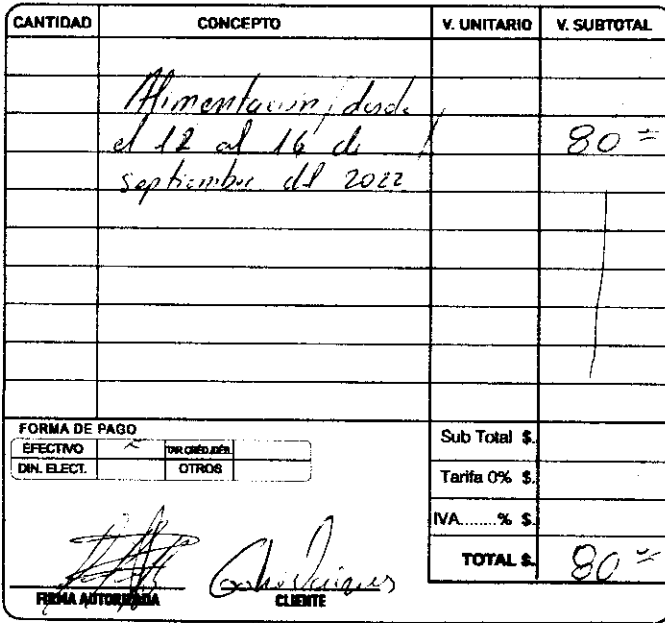 CANTIDAD CONCEPTO V. UNITARIO V. SUBTOTAL
Alimentación / desde
el 12 al 16 de 80 =
septiembre del 2022
FORMA DE PAGO
EFECTIVO TAR.CRÉD./DÉB.
DIN. ELECT. OTROS
Sub Total $.
Tarifa 0% $.
IVA........% $.
TOTAL $. 80 =
FIRMA AUTORIZADA CLIENTE